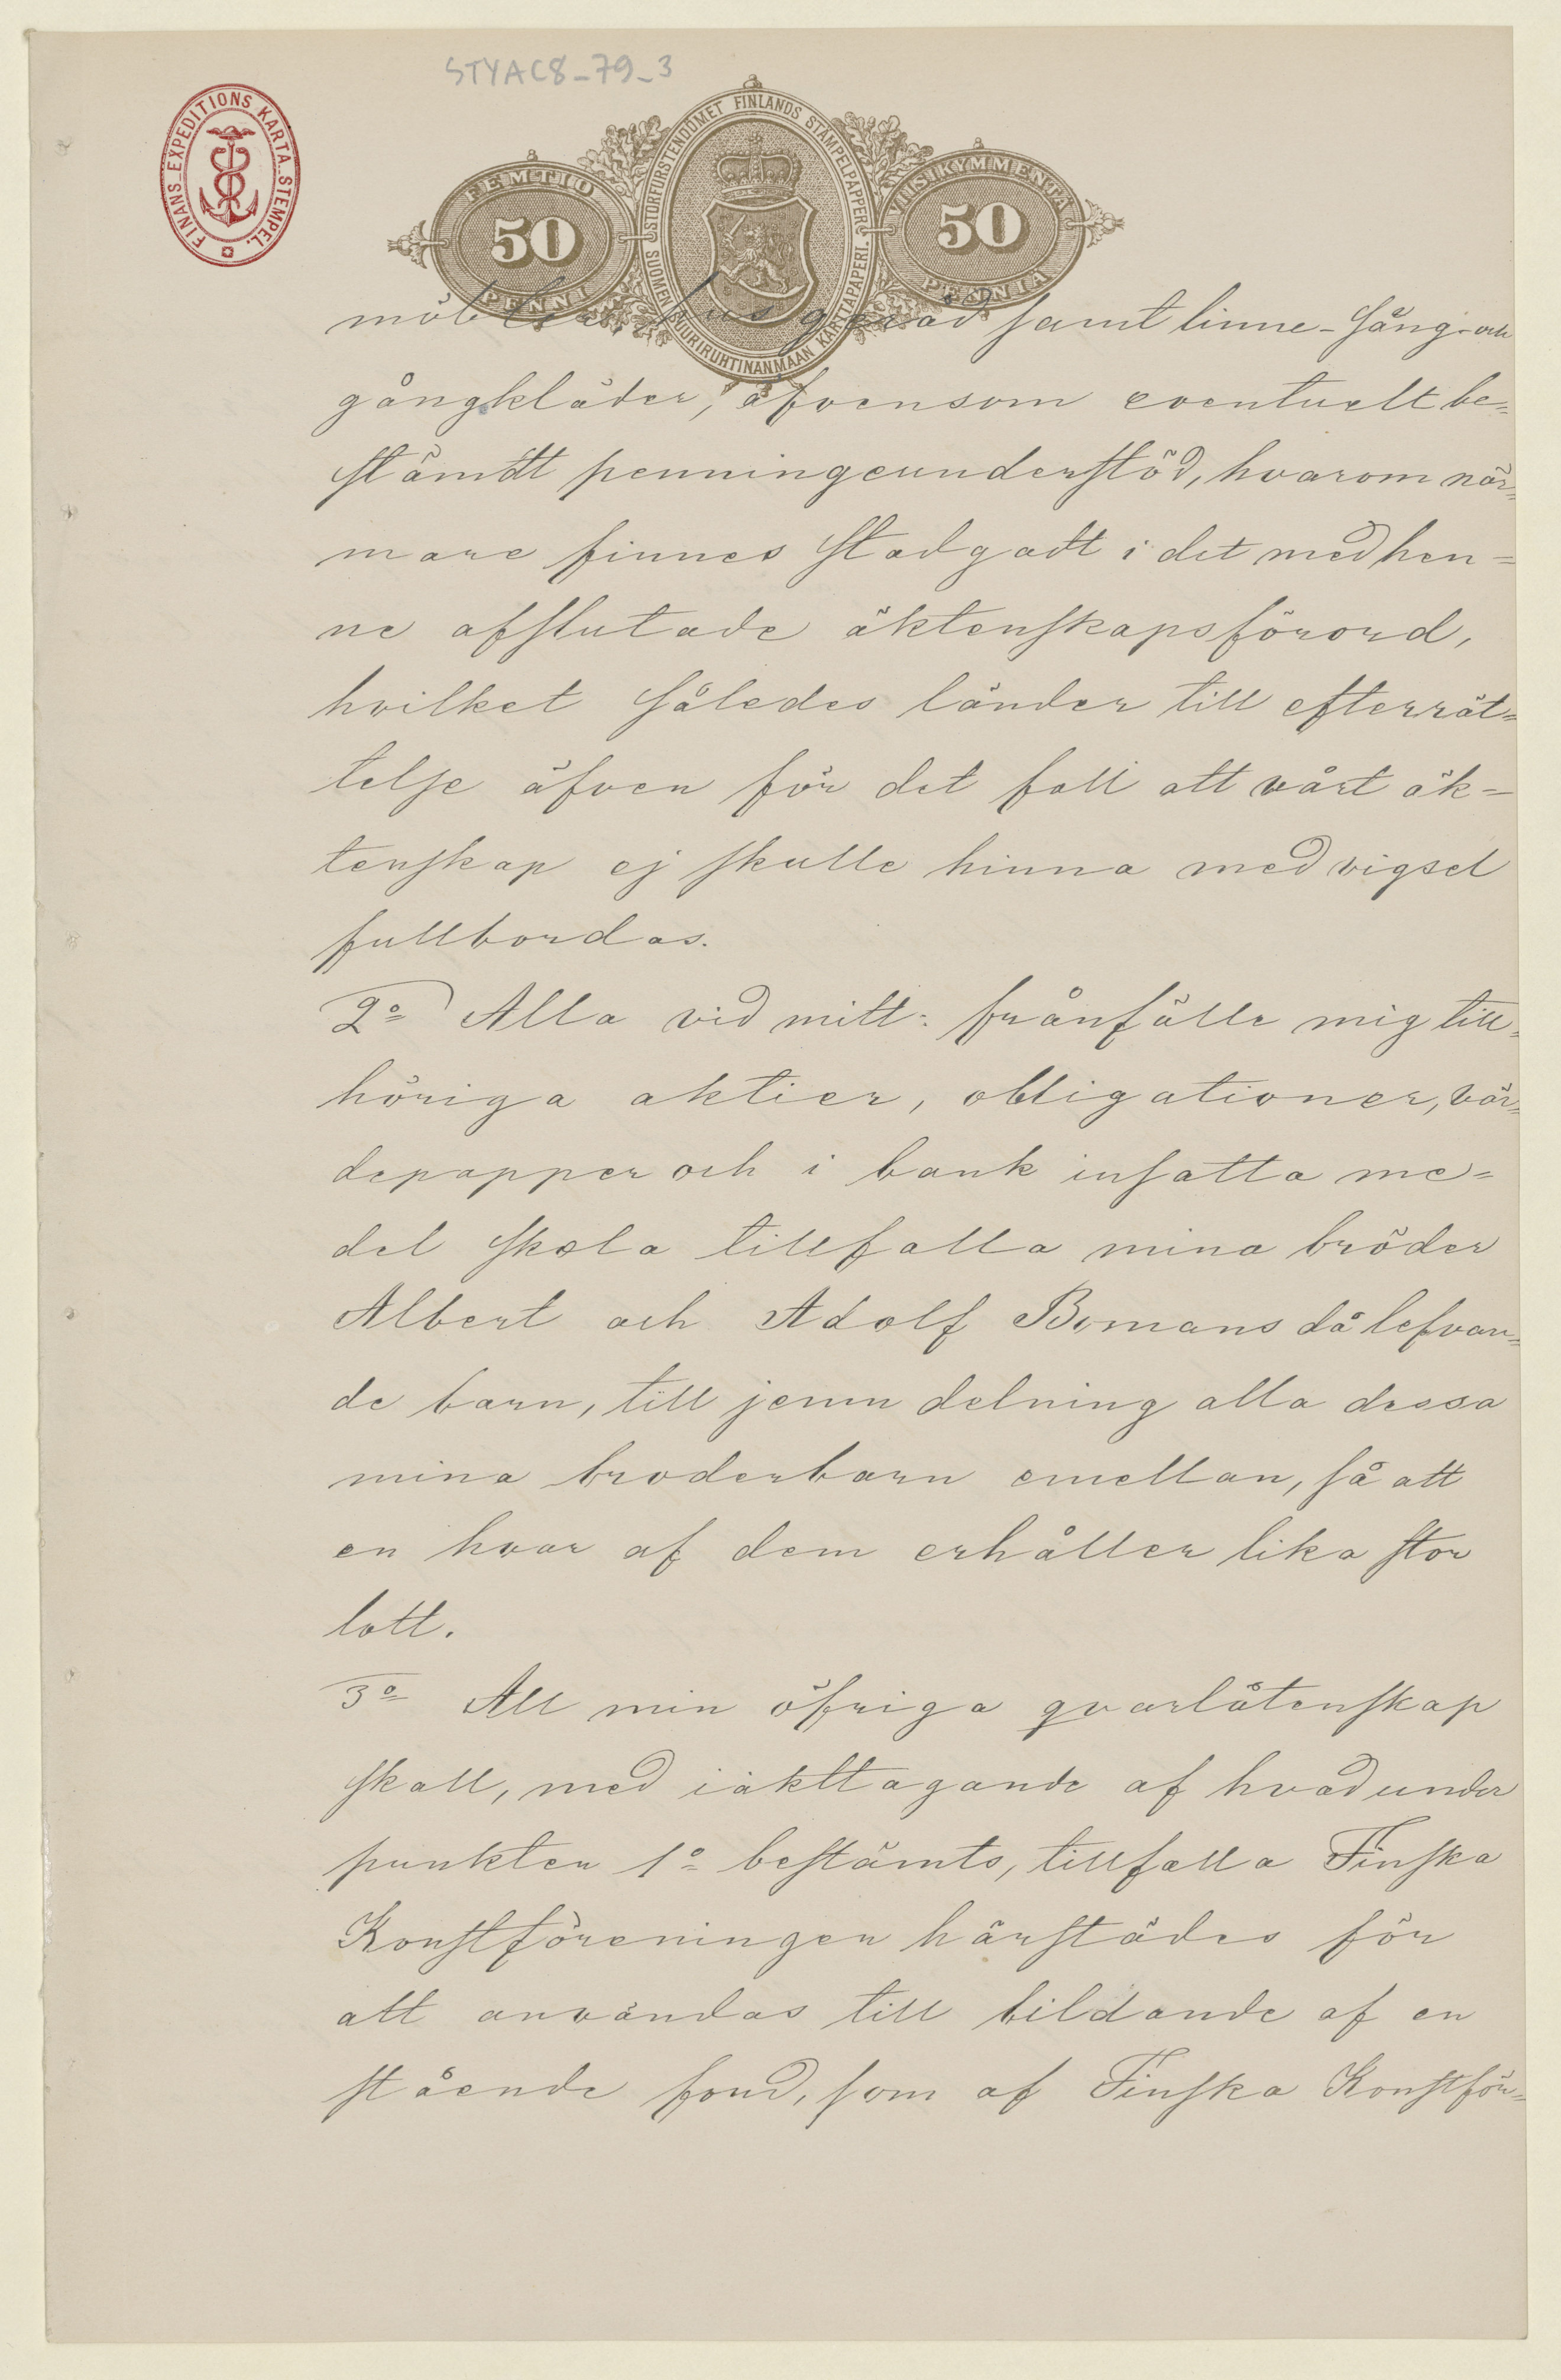 STYAC8_79_3
FINANS_EXPEDITIONS KARTA_STEMPEL.
STORFURSTENDÖMET FINLANDS STÄMPELPAPPER
SUOMEN SUURIRUHTINANMAAN KARTTAPAPERI.
FEMTIO
50
PENNI
VIISIKYMMENTÄ
50
PENNIÄ
möbler, husgeråd samt linne- säng- och
gångkläder, äfvensom eventuelt be=
stämdt penningeunderstöd, hvarom när=
mare finnes stadgadt i det med hen=
ne afslutade äktenskapsförord,
hvilket således länder till efterrät=
telse äfven för det fall att vårt äk=
tenskap ej skulle hinna med vigsel
fullbordas.
2o Alla vid mitt frånfälle mig till=
höriga aktier, obligationer, vär=
depapper och i bank insatta me=
del skola tillfalla mina bröder
Albert och Adolf Bomans då lefvan=
de barn, till jemn delning alla dessa
mina broderbarn emellan, så att
en hvar af dem erhåller lika stor
lott.
3o All min öfriga qvarlåtenskap
skall, med iakttagande af hvad under
punkten 1o bestämts, tillfalla Finska
Konstföreningen härstädes för
att användas till bildande af en
stående fond, som af Finska Konstför=